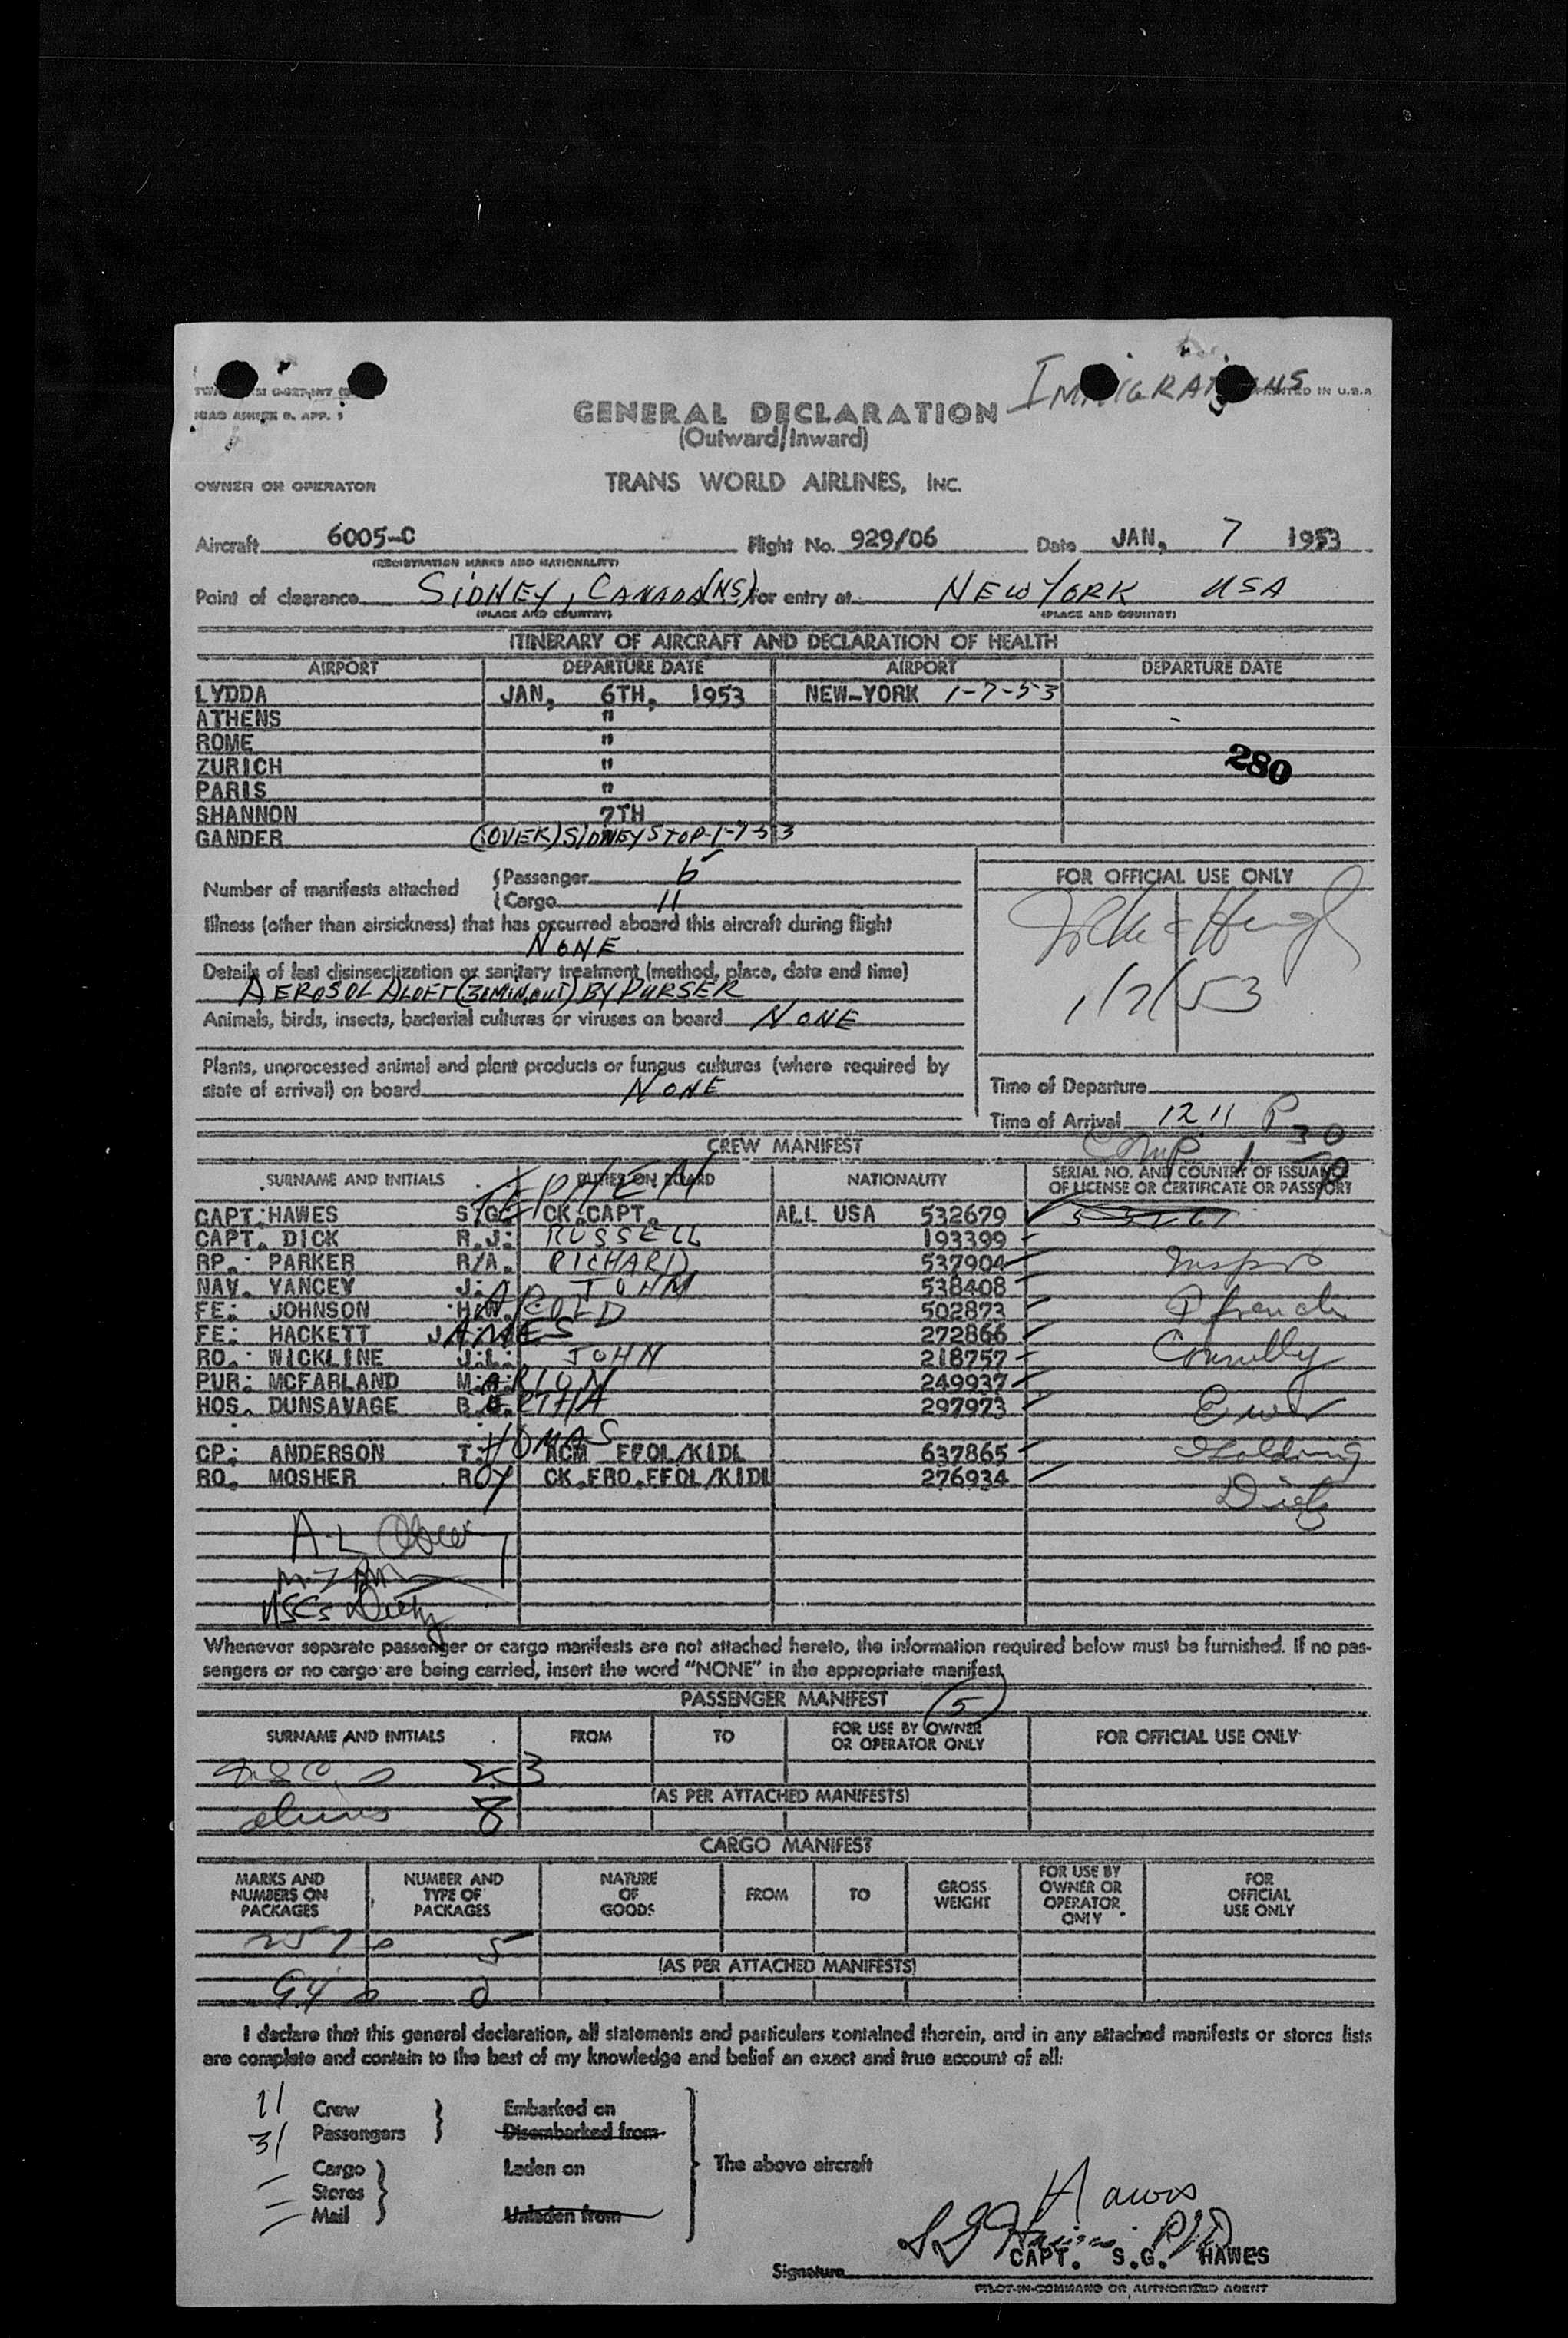 IMMIGRATIONS
PRINTED IN U.S.A
ICAO ANNEX 9. APP. 1
GENERAL DECLARATION
(Outward/Inward)
OWNER OR OPERATOR TRANS WORLD AIRLINES, INC.
Aircraft 6005-C Flight No. 929/06 Date JAN, 7 1953
(REGISTRATION MARKS AND NATIONALITY)
Point of clearance SIDNEY, CANADA (NS) For entry at NEW YORK USA
(PLACE AND COUNTRY) (PLACE AND COUNTRY)
ITINERARY OF AIRCRAFT AND DECLARATION OF HEALTH
AIRPORT DEPARTURE DATE AIRPORT DEPARTURE DATE
LYDDA JAN, 6TH, 1953 NEW-YORK 1-7-53
ATHENS "
ROME "
ZURICH " 280
PARIS "
SHANNON 7TH
GANDER (OVER) SIDNEY STOP-1-7-53
Number of manifests attached
Passenger 5
Cargo 11
FOR OFFICIAL USE ONLY
Illness (other than airsickness) that has occurred aboard this aircraft during flight
NONE
Details of last disinsectization or sanitary treatment (method, place, date and time)
AEROSOL ALOFT (30MIN.OUT) BY PURSER
1/7/53
Animals, birds, insects, bacterial cultures or viruses on board NONE
Plants, unprocessed animal and plant products or fungus cultures (where required by
state of arrival) on board NONE
Time of Departure
Time of Arrival 12 11 P
CREW MANIFEST
Comp. 1 30 P
SURNAME AND INITIALS DUTIES ON BOARD NATIONALITY SERIAL NO. AND COUNTRY OF ISSUANCE
OF LICENSE OR CERTIFICATE OR PASSPORT
STEPHEN
CAPT. HAWES S.G. CK.CAPT. ALL USA 532679
CAPT. DICK R.J. RUSSELL 193399
RP. PARKER R/A. RICHARD 537904
NAV. YANCEY J. JOHN 538408
FE: JOHNSON H.W. HAROLD 502873
FE: HACKETT JAMES 272866
RO.: WICKLINE J.L. JOHN 218757 Connelly
PUR: MCFARLAND MARION 249937
HOS. DUNSAVAGE BERTHA 297973
CP: ANDERSON THOMAS ACM FFOL/KIDL 637865
RO. MOSHER ROY CK.FRO.FFOL/KIDL 276934
Whenever separate passenger or cargo manifests are not attached hereto, the information required below must be furnished. If no pas-
sengers or no cargo are being carried, insert the word "NONE" in the appropriate manifest.
PASSENGER MANIFEST 5
SURNAME AND INITIALS FROM TO FOR USE BY OWNER
OR OPERATOR ONLY FOR OFFICIAL USE ONLY
USC 23
(AS PER ATTACHED MANIFESTS)
aliens 8
CARGO MANIFEST
MARKS AND
NUMBERS ON
PACKAGES NUMBER AND
TYPE OF
PACKAGES NATURE
OF
GOODS FROM TO GROSS
WEIGHT FOR USE BY
OWNER OR
OPERATOR
ONLY FOR
OFFICIAL
USE ONLY
5
(AS PER ATTACHED MANIFESTS)
0
I declare that this general declaration, all statements and particulars contained therein, and in any attached manifests or stores lists
are complete and contain to the best of my knowledge and belief an exact and true account of all:
11 Crew Embarked on
31 Passengers Disembarked from
Cargo Laden on The above aircraft
Stores
Mail Unladen from
Hawes
CAPT. S.G. HAWES
Signature
PILOT-IN-COMMAND OR AUTHORIZED AGENT